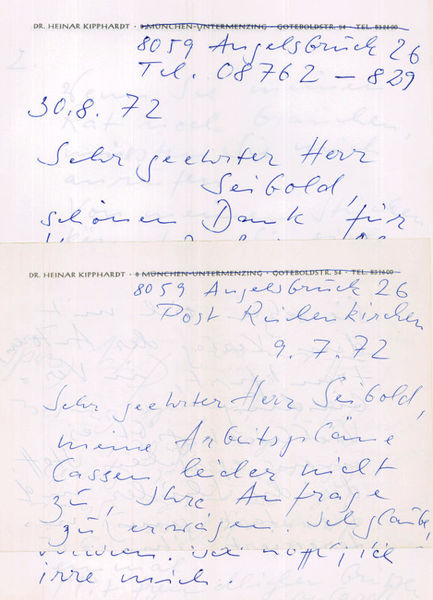 DR. HEINAR KIPPHARDT · 8 MÜNCHEN-UNTERMENZING · GOTEBOLDSTR. 54 · TEL. 83 26 00
8059 Angelsbruck 26
Tel. 08762 – 829
30.8.72
Sehr geehrter Herr
Seibold,
schönen Dank für
DR. HEINAR KIPPHARDT · 8 MÜNCHEN-UNTERMENZING · GOTEBOLDSTR. 54 · TEL. 83 26 00
8059 Angelsbruck 26
Post
9.7.72
Sehr geehrter Herr Seibold,
meine Arbeitspläne
lassen leider nicht
zu, Ihre Anfrage
zu erwägen. Ich glaube,
ich
irre mich.